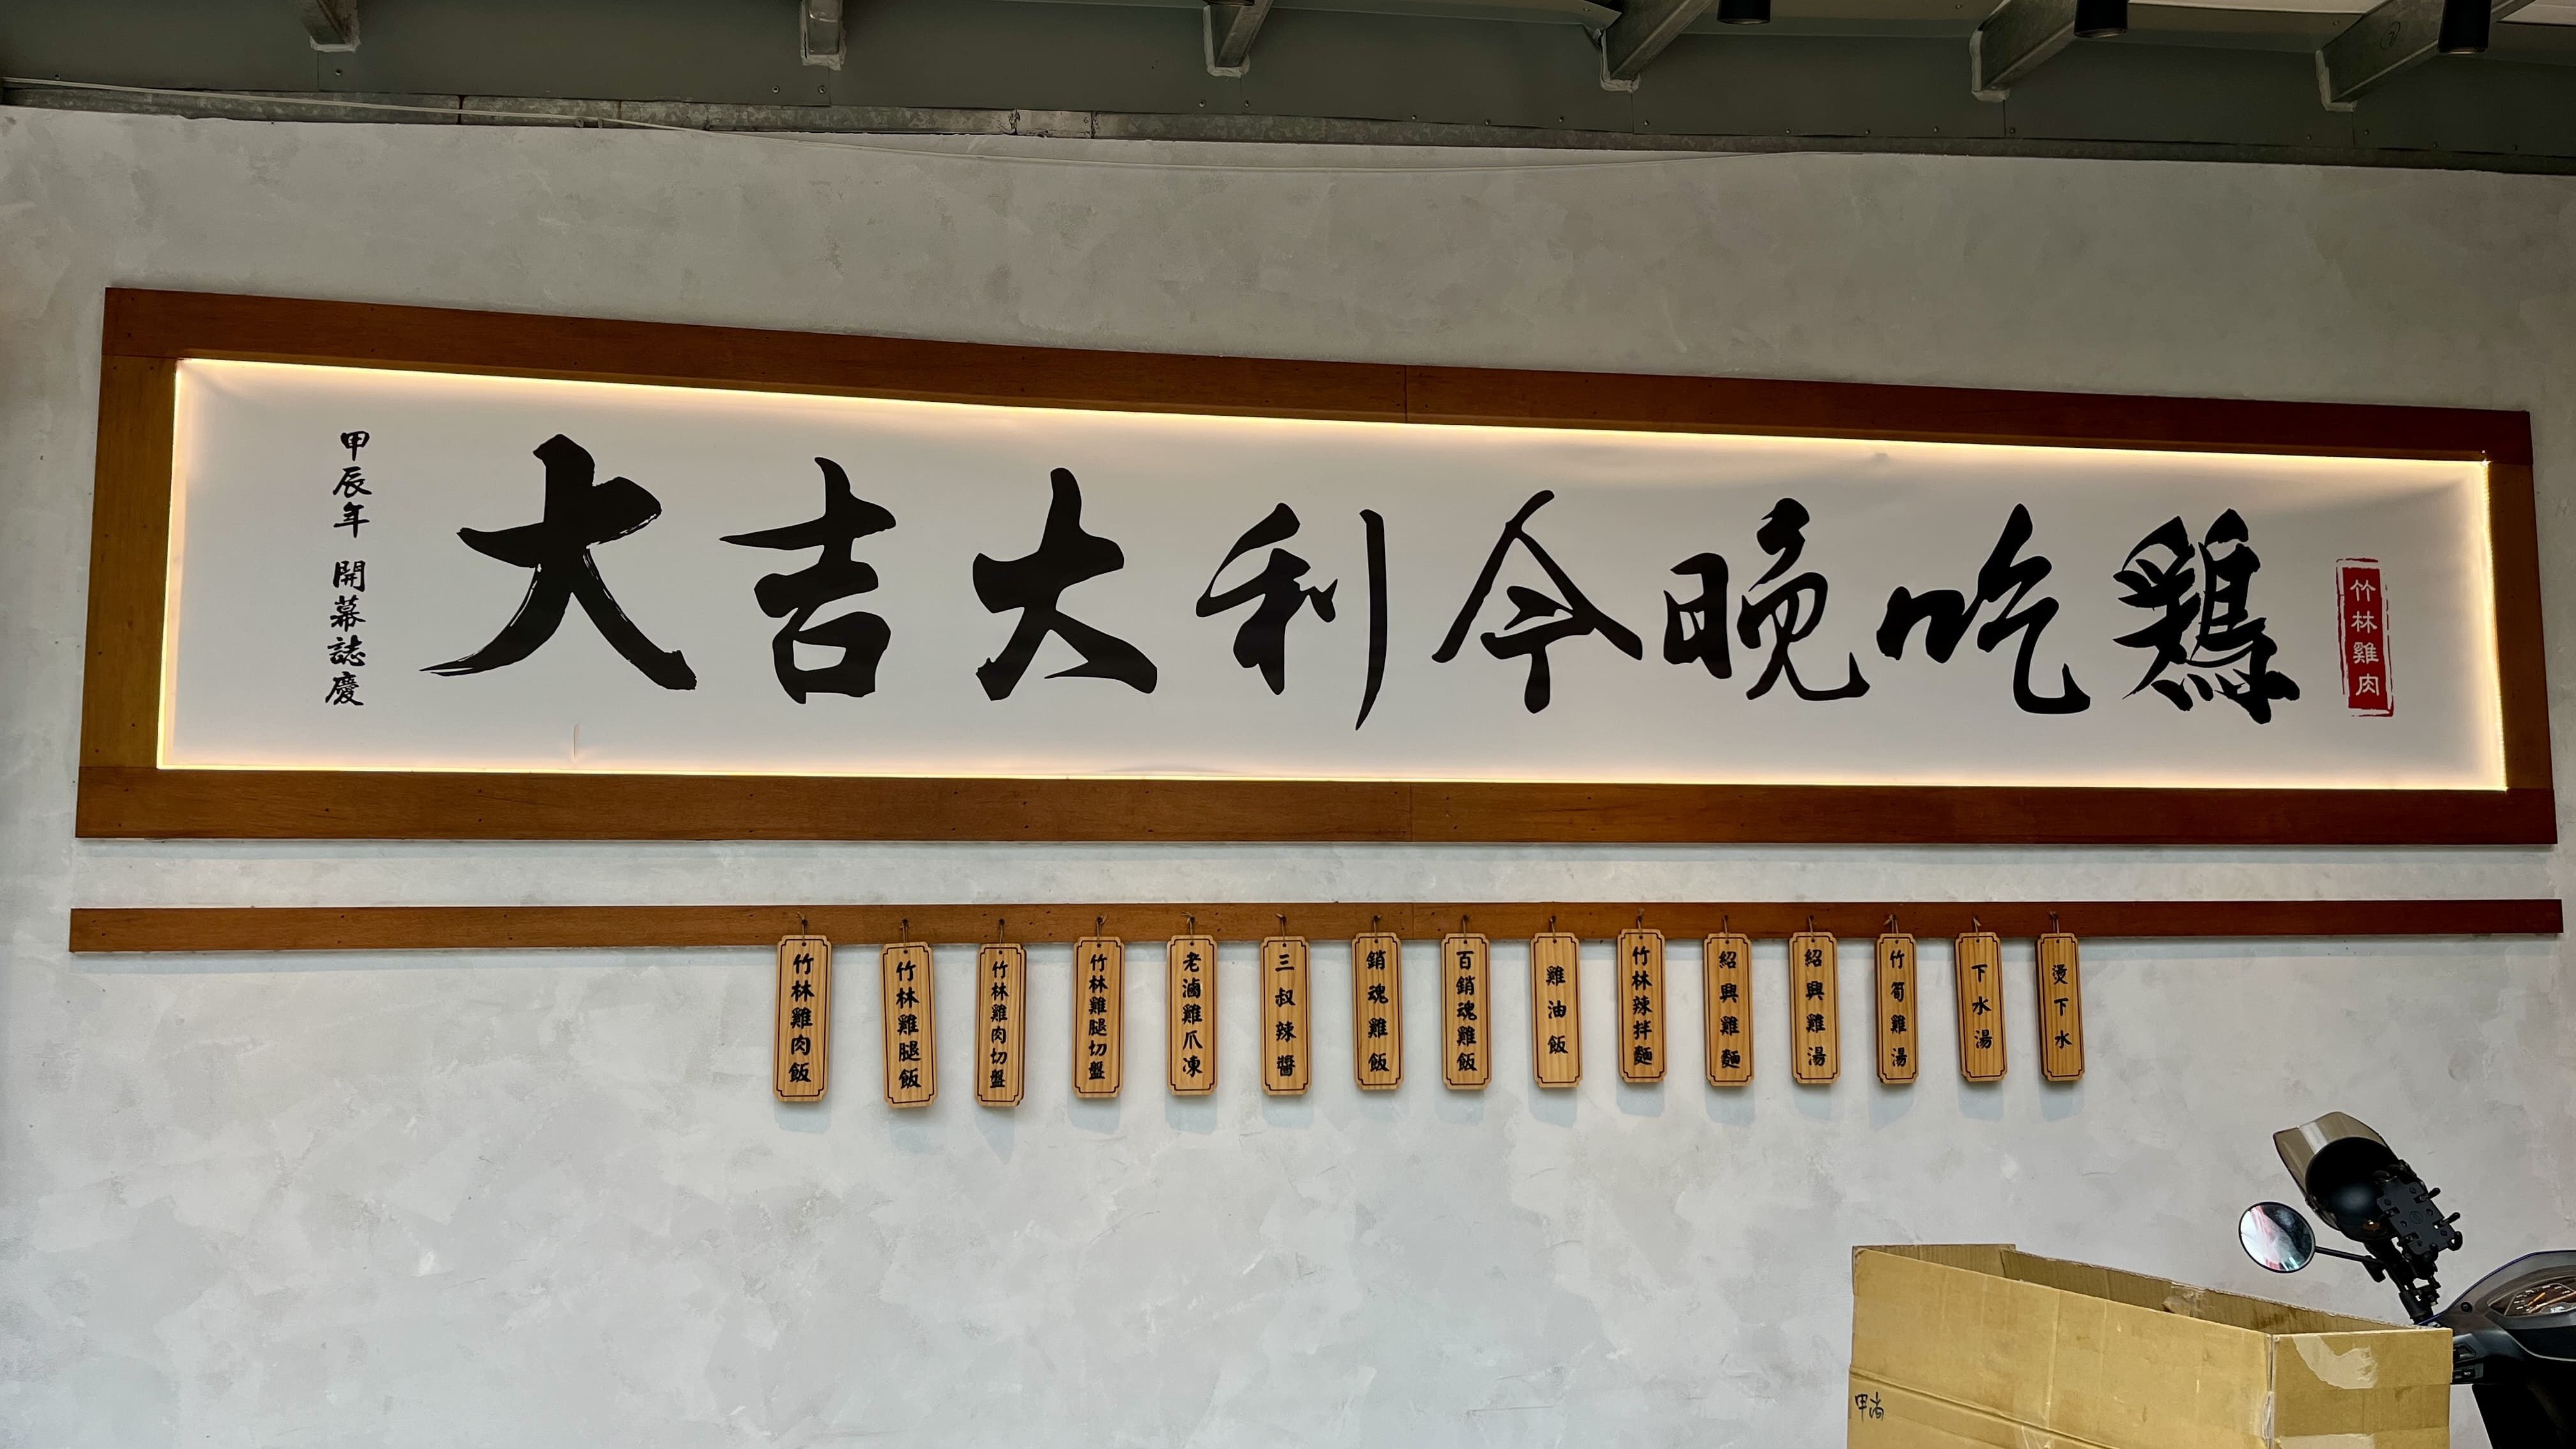 甲辰年 開幕誌慶
大吉大利今晚吃鷄
竹林雞肉
竹林雞肉飯
竹林雞腿飯
竹林雞肉切盤
竹林雞腿切盤
老滷雞爪凍
三叔辣醬
銷魂雞飯
百銷魂雞飯
雞油飯
竹林辣拌麵
紹興雞麵
紹興雞湯
竹筍雞湯
下水湯
燙下水